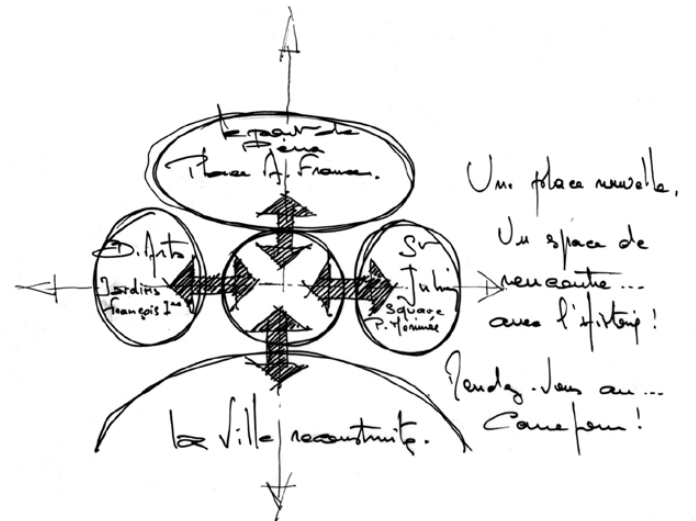 Le pont de
Pierre
Place A. France.
B. Arts
Jardins
François 1er
St
Julien
Square
P. Mérimée
La Ville reconstruite.
Une place nouvelle,
Un espace de
rencontre...
avec l'histoire!
Rendez-vous au...
Carrefour!